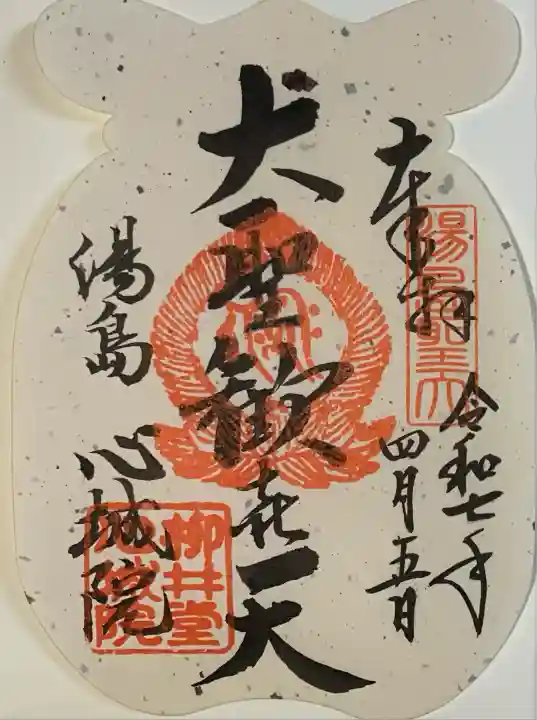 奉拝
湯島聖天
令和七年
四月五日
大聖歓喜天
湯島 心城院
柳井堂
心城院